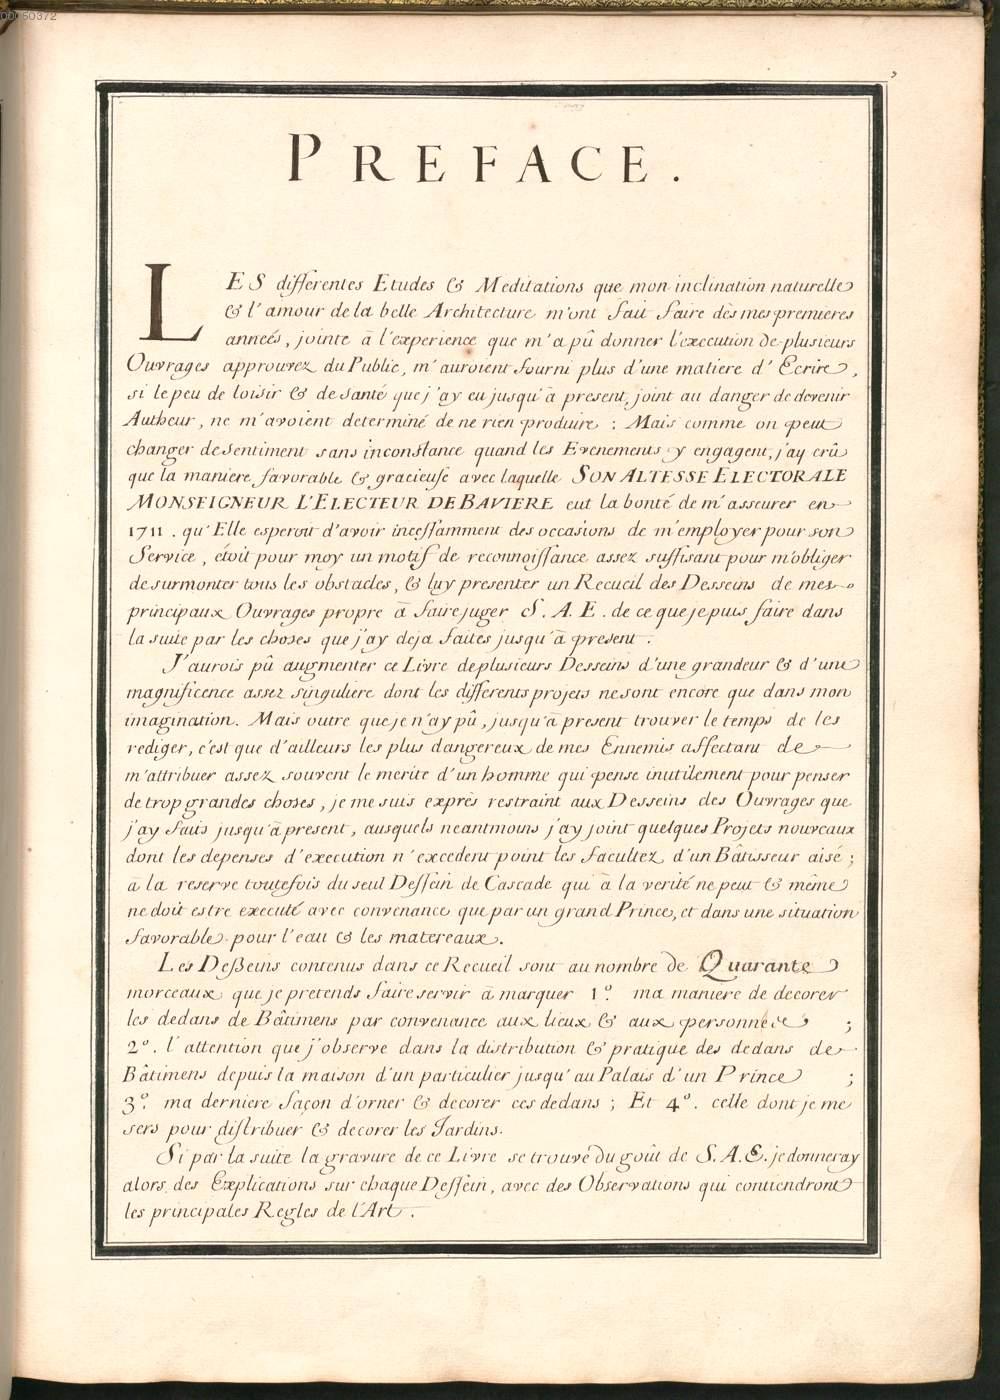 00050372
PREFACE.
LES differentes Etudes & Meditations que mon inclination naturelle
& l'amour de la belle Architecture m'ont fait faire dès mes premieres
anneés, jointe à l'experience que m'a pû donner l'execution de plusieurs
Ouvrages approuvez du Public, m'auroient fourni plus d'une matiere d'Ecrire,
si le peu de loisir & de santé que j'ay eu jusqu'à present, joint au danger de devenir
Autheur, ne m'avoient determiné de ne rien produire : Mais comme on peut
changer de sentiment sans inconstance quand les Evenements y engagent, j'ay crû
que la maniere favorable & gracieuse avec laquelle SON ALTESSE ELECTORALE
MONSEIGNEUR L'ELECTEUR DE BAVIERE eut la bonté de m'asseurer en
1711. qu'Elle esperoit d'avoir incessamment des occasions de m'employer pour son
Service, étoit pour moy un motif de reconnoissance assez suffisant pour m'obliger
de surmonter tous les obstacles, & luy presenter un Recueil des Desseins de mes
principaux Ouvrages propre à faire juger S. A. E. de ce que je puis faire dans
la suite par les choses que j'ay deja faites jusqu'à present.
J'aurois pû augmenter ce Livre de plusieurs Desseins d'une grandeur & d'une
magnificence assez singuliere dont les differents projets ne sont encore que dans mon
imagination. Mais outre que je n'ay pû, jusqu'à present trouver le temps de les
rediger, c'est que d'ailleurs les plus dangereux de mes Ennemis affectant de
m'attribuer assez souvent le merite d'un homme qui pense inutilement pour penser
de trop grandes choses, je me suis exprès restraint aux Desseins des Ouvrages que
j'ay faits jusqu'à present, ausquels neantmoins j'ay joint quelques Projets nouveaux
dont les depenses d'execution n'excedent point les facultez d'un Bâtisseur aisé ;
à la reserve toutefois du seul Dessein de Cascade qui à la verité ne peut & même
ne doit estre executé avec convenance que par un grand Prince, et dans une situation
favorable pour l'eau & les matereaux.
Les Deßeins contenus dans ce Recueil sont au nombre de Quarante
morceaux que je pretends faire servir à marquer 1º. ma maniere de decorer
les dedans de Bâtimens par convenance aux lieux & aux personnes ;
2º. l'attention que j'observe dans la distribution & pratique des dedans de
Bâtimens depuis la maison d'un particulier jusqu'au Palais d'un Prince ;
3º. ma derniere façon d'orner & decorer ces dedans ; Et 4º. celle dont je me
sers pour distribuer & decorer les Jardins.
Si par la suite la gravure de ce Livre se trouve du goût de S. A. E. je donneray
alors des Explications sur chaque Dessein, avec des Observations qui contiendront
les principales Regles de l'Art.